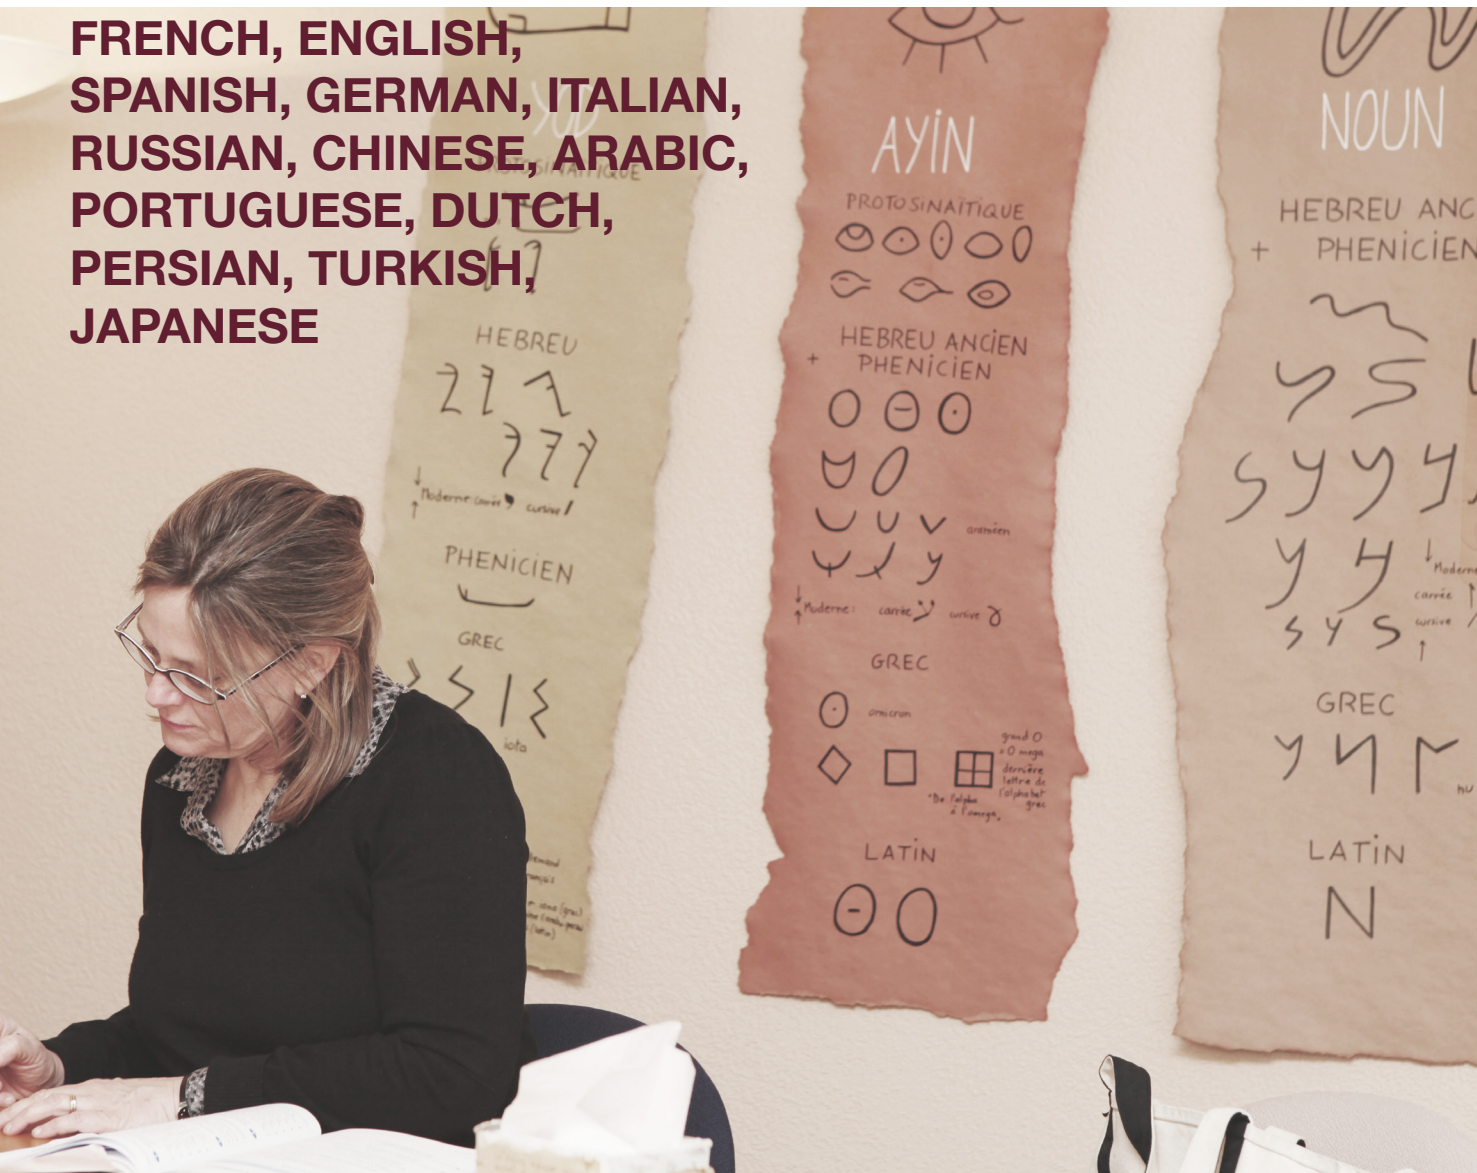 FRENCH, ENGLISH,
SPANISH, GERMAN, ITALIAN,
RUSSIAN, CHINESE, ARABIC,
PORTUGUESE, DUTCH,
PERSIAN, TURKISH,
JAPANESE
YOD
PROTOSINAITIQUE
HEBREU
Moderne: carrée cursive
PHENICIEN
GREC
iota
AYIN
PROTOSINAÏTIQUE
HEBREU ANCIEN
+ PHENICIEN
araméen
Moderne: carrée cursive
GREC
omicron
grand O
= O mega
dernière
lettre de
l'alphabet
grec
"De l'alpha
à l'omega"
LATIN
O O
NOUN
HEBREU ANC
+ PHENICIEN
Moderne
carrée
cursive
GREC
nu
LATIN
N